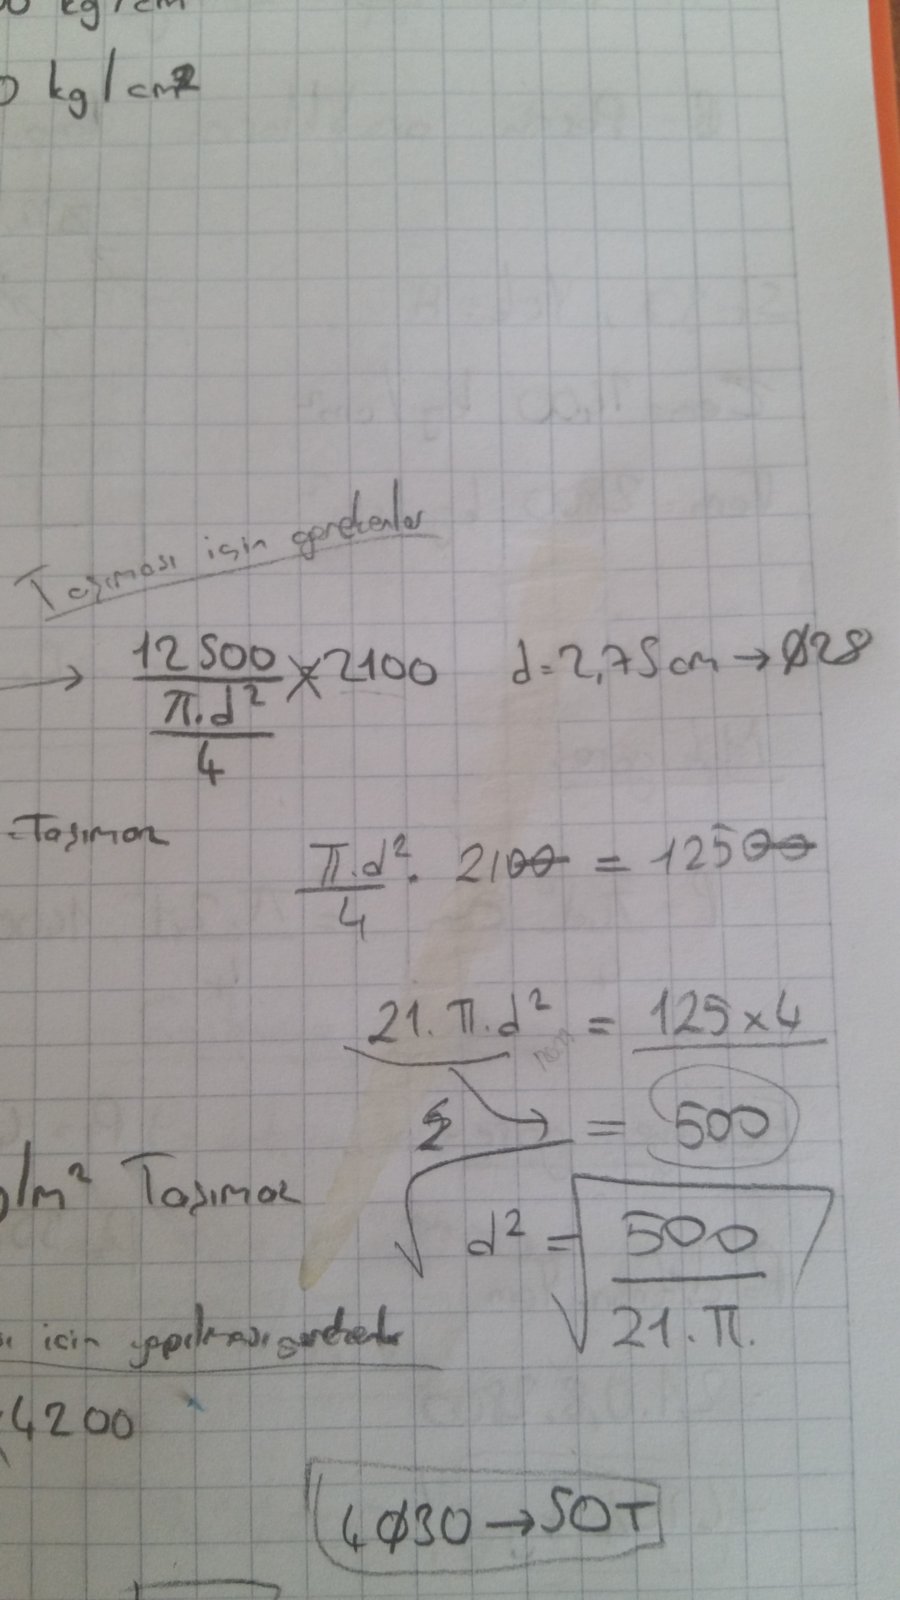 kg/cm
kg/cm2
Taşıması için gerekenler
→ 12500 / (π.d² / 4) × 2100 d=2,75cm → Ø28
Taşımaz
π.d² / 4 . 2100 = 12500
21.π.d² = 125×4
= 500
/m² Taşımaz
√d² = √(500 / 21.π.)
için yapılması gerekenler
4200
4Ø30 → 50T